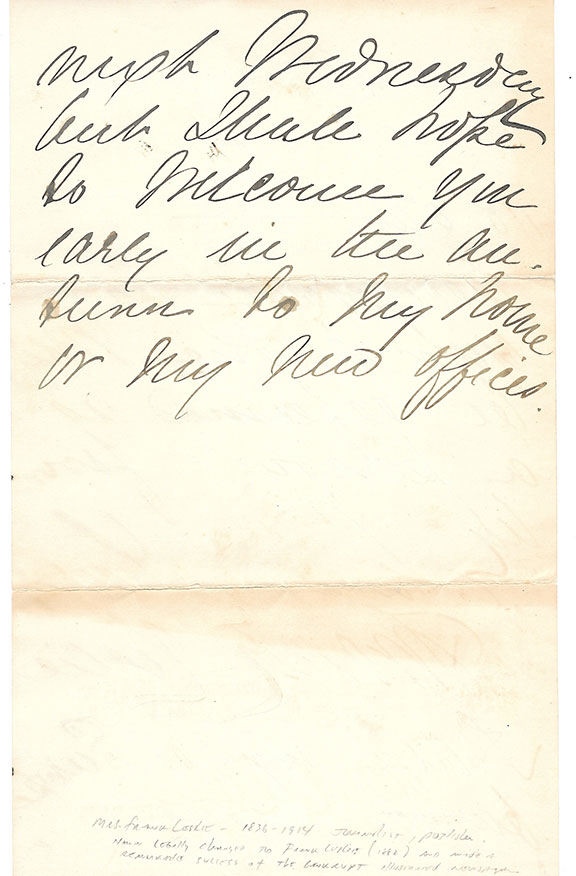 next Wednesday
but shall hope
to welcome you
early in the au-
tumn to my home
or my new offices.
Mrs. Frank Leslie - 1836-1914 Journalist, publisher.
Name legally changed to Frank Leslie (1882) and made a
remarkable success of the bankrupt illustrated newspaper